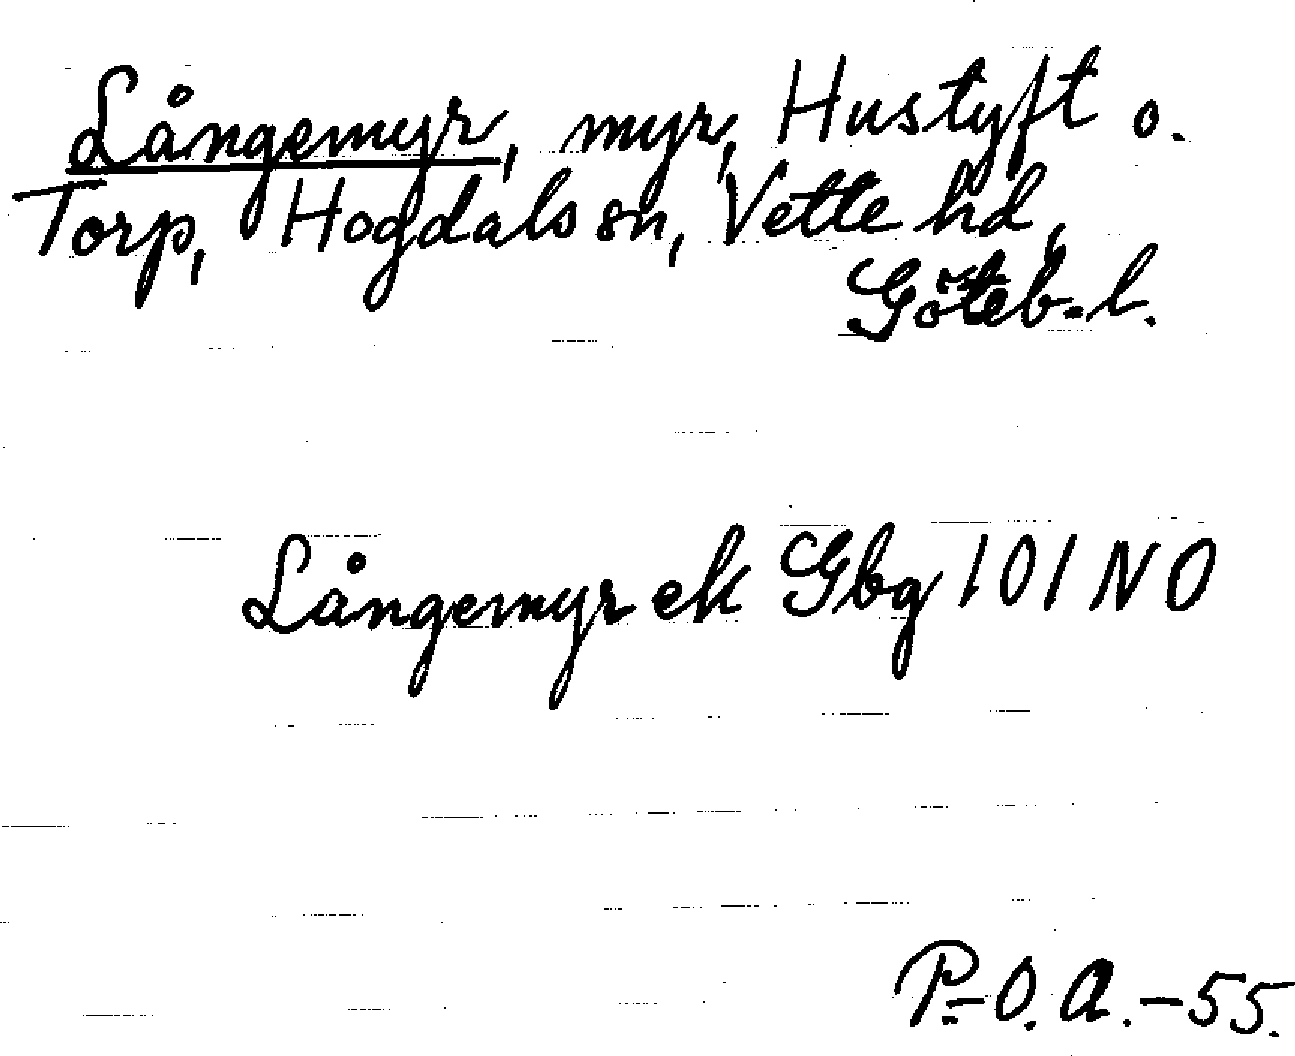 Långemyr, myr, Hustyft o.
Torp, Hogdals sn, Vette hd,
Göteb.-l.
Långemyr ek Gbg 101 NO
P.-O. A. -55.